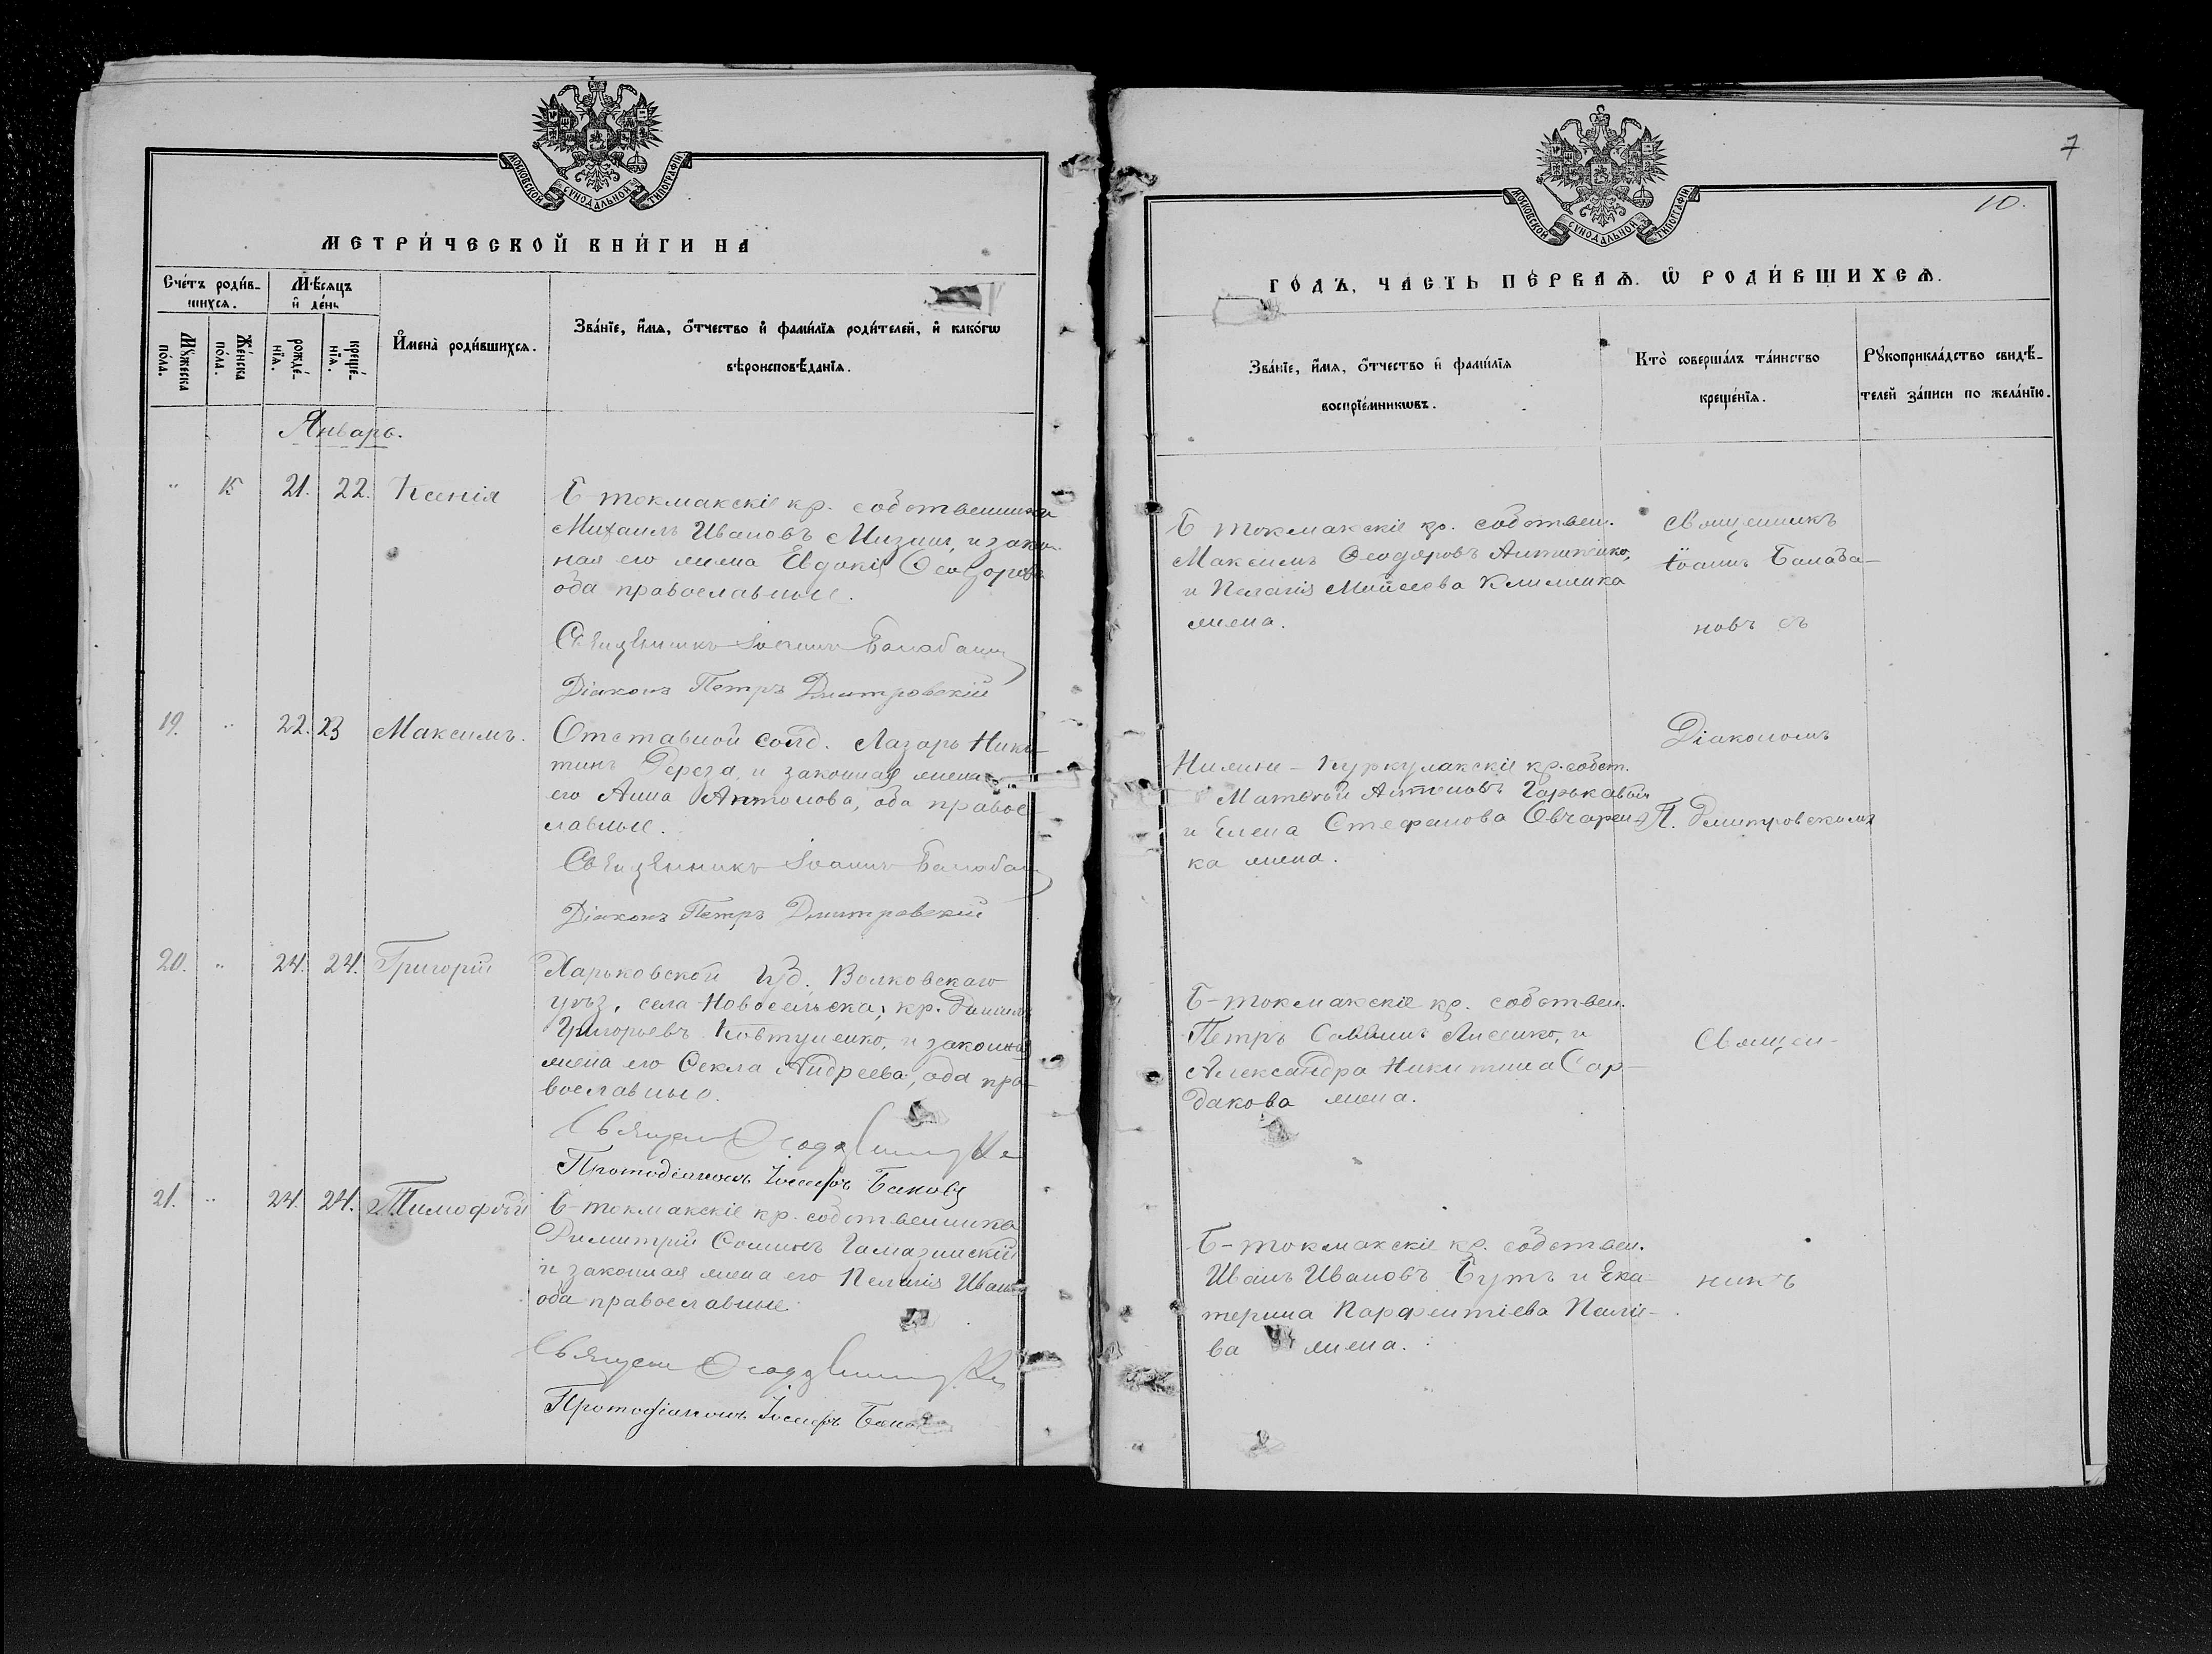 МОСКОВСКОЙ СѴНОДАЛЬНОЙ ТИПОГРАФІИ
МЕТРИ́ЧЕСКОЙ КНИ́ГИ НА
Сче́тъ роди́в-
шихсѧ.
Мѣ́сѧцъ
и҆ де́нь
Мꙋ́жеска
по́ла.
Же́нска
по́ла.
рожде́-
нїѧ.
креще́-
нїѧ.
И҆мена̀ роди́вшихсѧ.
Зва́нїе, и҆́мѧ, ѻ҆́тчество и҆ фами́лїѧ роди́телей, и҆ како́гѡ
вѣроисповѣ́данїѧ.
Январь.
" 15 21. 22. Ксенія
Б-токмакскіе кр. собственники
Михаилъ Ивановъ и закон
ная его жена Евдокія Ѳеодорова
оба православные.
Священникъ Іоаннъ Балабан
Діаконъ Петръ Дмитровскій
19. " 22. 23 Максимъ.
Отставной солд. Лазарь Ники-
тинъ Береза, и законная жена
его Анна Антонова, оба право
славные.
Священникъ Іоаннъ Балабан
Діаконъ Петръ Дмитровскій
20. " 24. 24. Григорій
Харьковской губ. Волковскаго
уѣз. села Новосельска, кр.
Григорьевъ Ковтуненко, и законная
жена его Ѳекла Андреева, оба пра-
вославные.
Священ
Протодіаконъ Іосифъ Баковъ
21. " 24. 24. Тимофей
Б-токмакскіе кр. собственника
Димитрій Гамазинскій
и законная жена его Пелагія Иванова
оба православные.
Священ
Протодіаконъ Іосифъ
7
10.
МОСКОВСКОЙ СѴНОДАЛЬНОЙ ТИПОГРАФІИ
ГО́ДЪ, ЧА́СТЬ ПЕ́РВАѦ. Ѡ҆ РОДИ́ВШИХСѦ.
Зва́нїе, и҆́мѧ, ѻ҆́тчество и҆ фами́лїѧ
воспрїе́мникѡвъ.
Кто̀ соверша́лъ та́инство
креще́нїѧ.
Рꙋкоприкла́дство свидѣ́-
телей за́писи по жела́нїю.
Б токмакскіе кр. собствен.
Максимъ Ѳеодоровъ Антипенко,
и Пелагія Моисеева Клименка
жена.
Священникъ
Іоаннъ Балаба-
новъ съ
Діакономъ
П. Дмитровскимъ
Нижне-Куркулакскіе кр. собст.
Матвѣй Антоновъ Горьковый
и Елена Стефанова Овчарен-
ка жена.
Б-токмакскіе кр. собствен.
Петръ Саввинъ Лисенко, и
Александра Никитина Сар-
дакова жена.
Священ-
Б-токмакскіе кр. собствен.
Иванъ Ивановъ Бутъ и Ека-
терина Парфентіева Паліе-
ва жена.
никъ